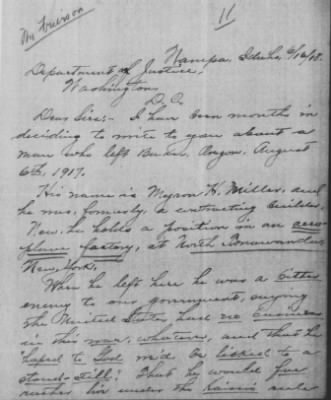 11
Nampa, Idaho 6/16/18.
Department of Justice,
Washington
D.C.
Dear Sirs:- I have been months in
deciding to write to you about a
man who left Baker, Oregon. August
6th, 1917.
His name is Myron K. Miller, and
he was, formerly, a contracting builder,
Now, he holds a position in an aero-
plane factory, at North Tonawanda,
New York.
When he left here he was a bitter
enemy to our government, saying
the United States had no business
in this war, whatever, and that he
"hoped to God we'd be licked to a
stand-still." That he would far
rather live under the Kaiser's rule